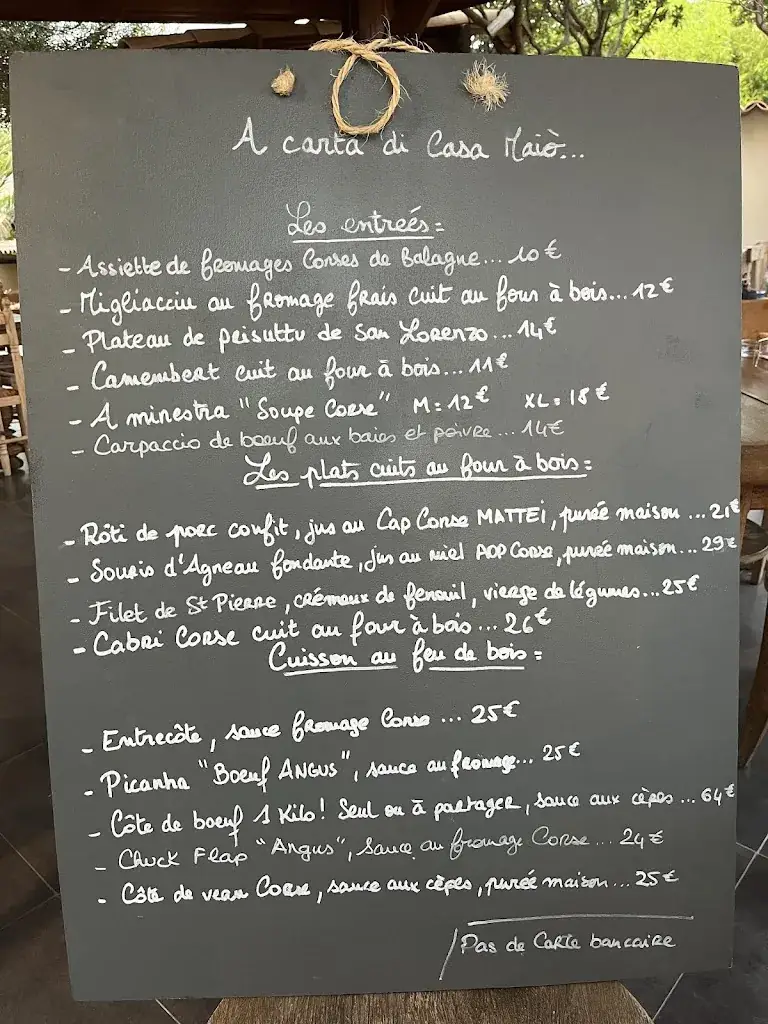 A carta di Casa Maiò...
Les entreés =
- Assiette de fromages Corses de Balagne... 10 €
- Migliacciu au fromage frais cuit au four à bois... 12 €
- Plateau de prisuttu de San Lorenzo... 14€
- Camembert cuit au four à bois... 11€
- A minestra "Soupe Corse" M = 12€ XL = 18 €
- Carpaccio de boeuf aux baies et poivre... 14€
Les plats cuits au four à bois =
- Rôti de porc confit, jus au Cap Corse MATTEI, purée maison ... 21€
- Souris d'Agneau fondante, jus au miel AOP Corse, purée maison... 29€
- Filet de St Pierre, crémeux de fenouil, vierge de légumes... 25€
- Cabri Corse cuit au four à bois ... 26€
Cuisson au feu de bois =
- Entrecôte, sauce fromage Corse ... 25€
- Picanha "Boeuf ANGUS", sauce au fromage... 25€
- Côte de boeuf 1 Kilo! Seul ou à partager, sauce aux cèpes ... 64€
- Chuck Flap "Angus", sauce au fromage Corse ... 24€
- Côte de veau Corse, sauce aux cèpes, purée maison... 25€
Pas de Carte bancaire